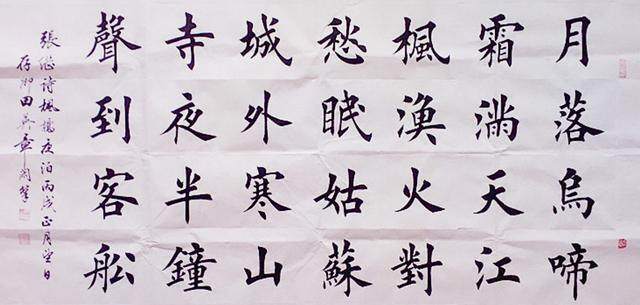 月落烏啼
霜滿天江
楓漁火對
愁眠姑蘇
城外寒山
寺夜半鐘
聲到客船
張继诗楓橋夜泊丙戌正月望日
田英章